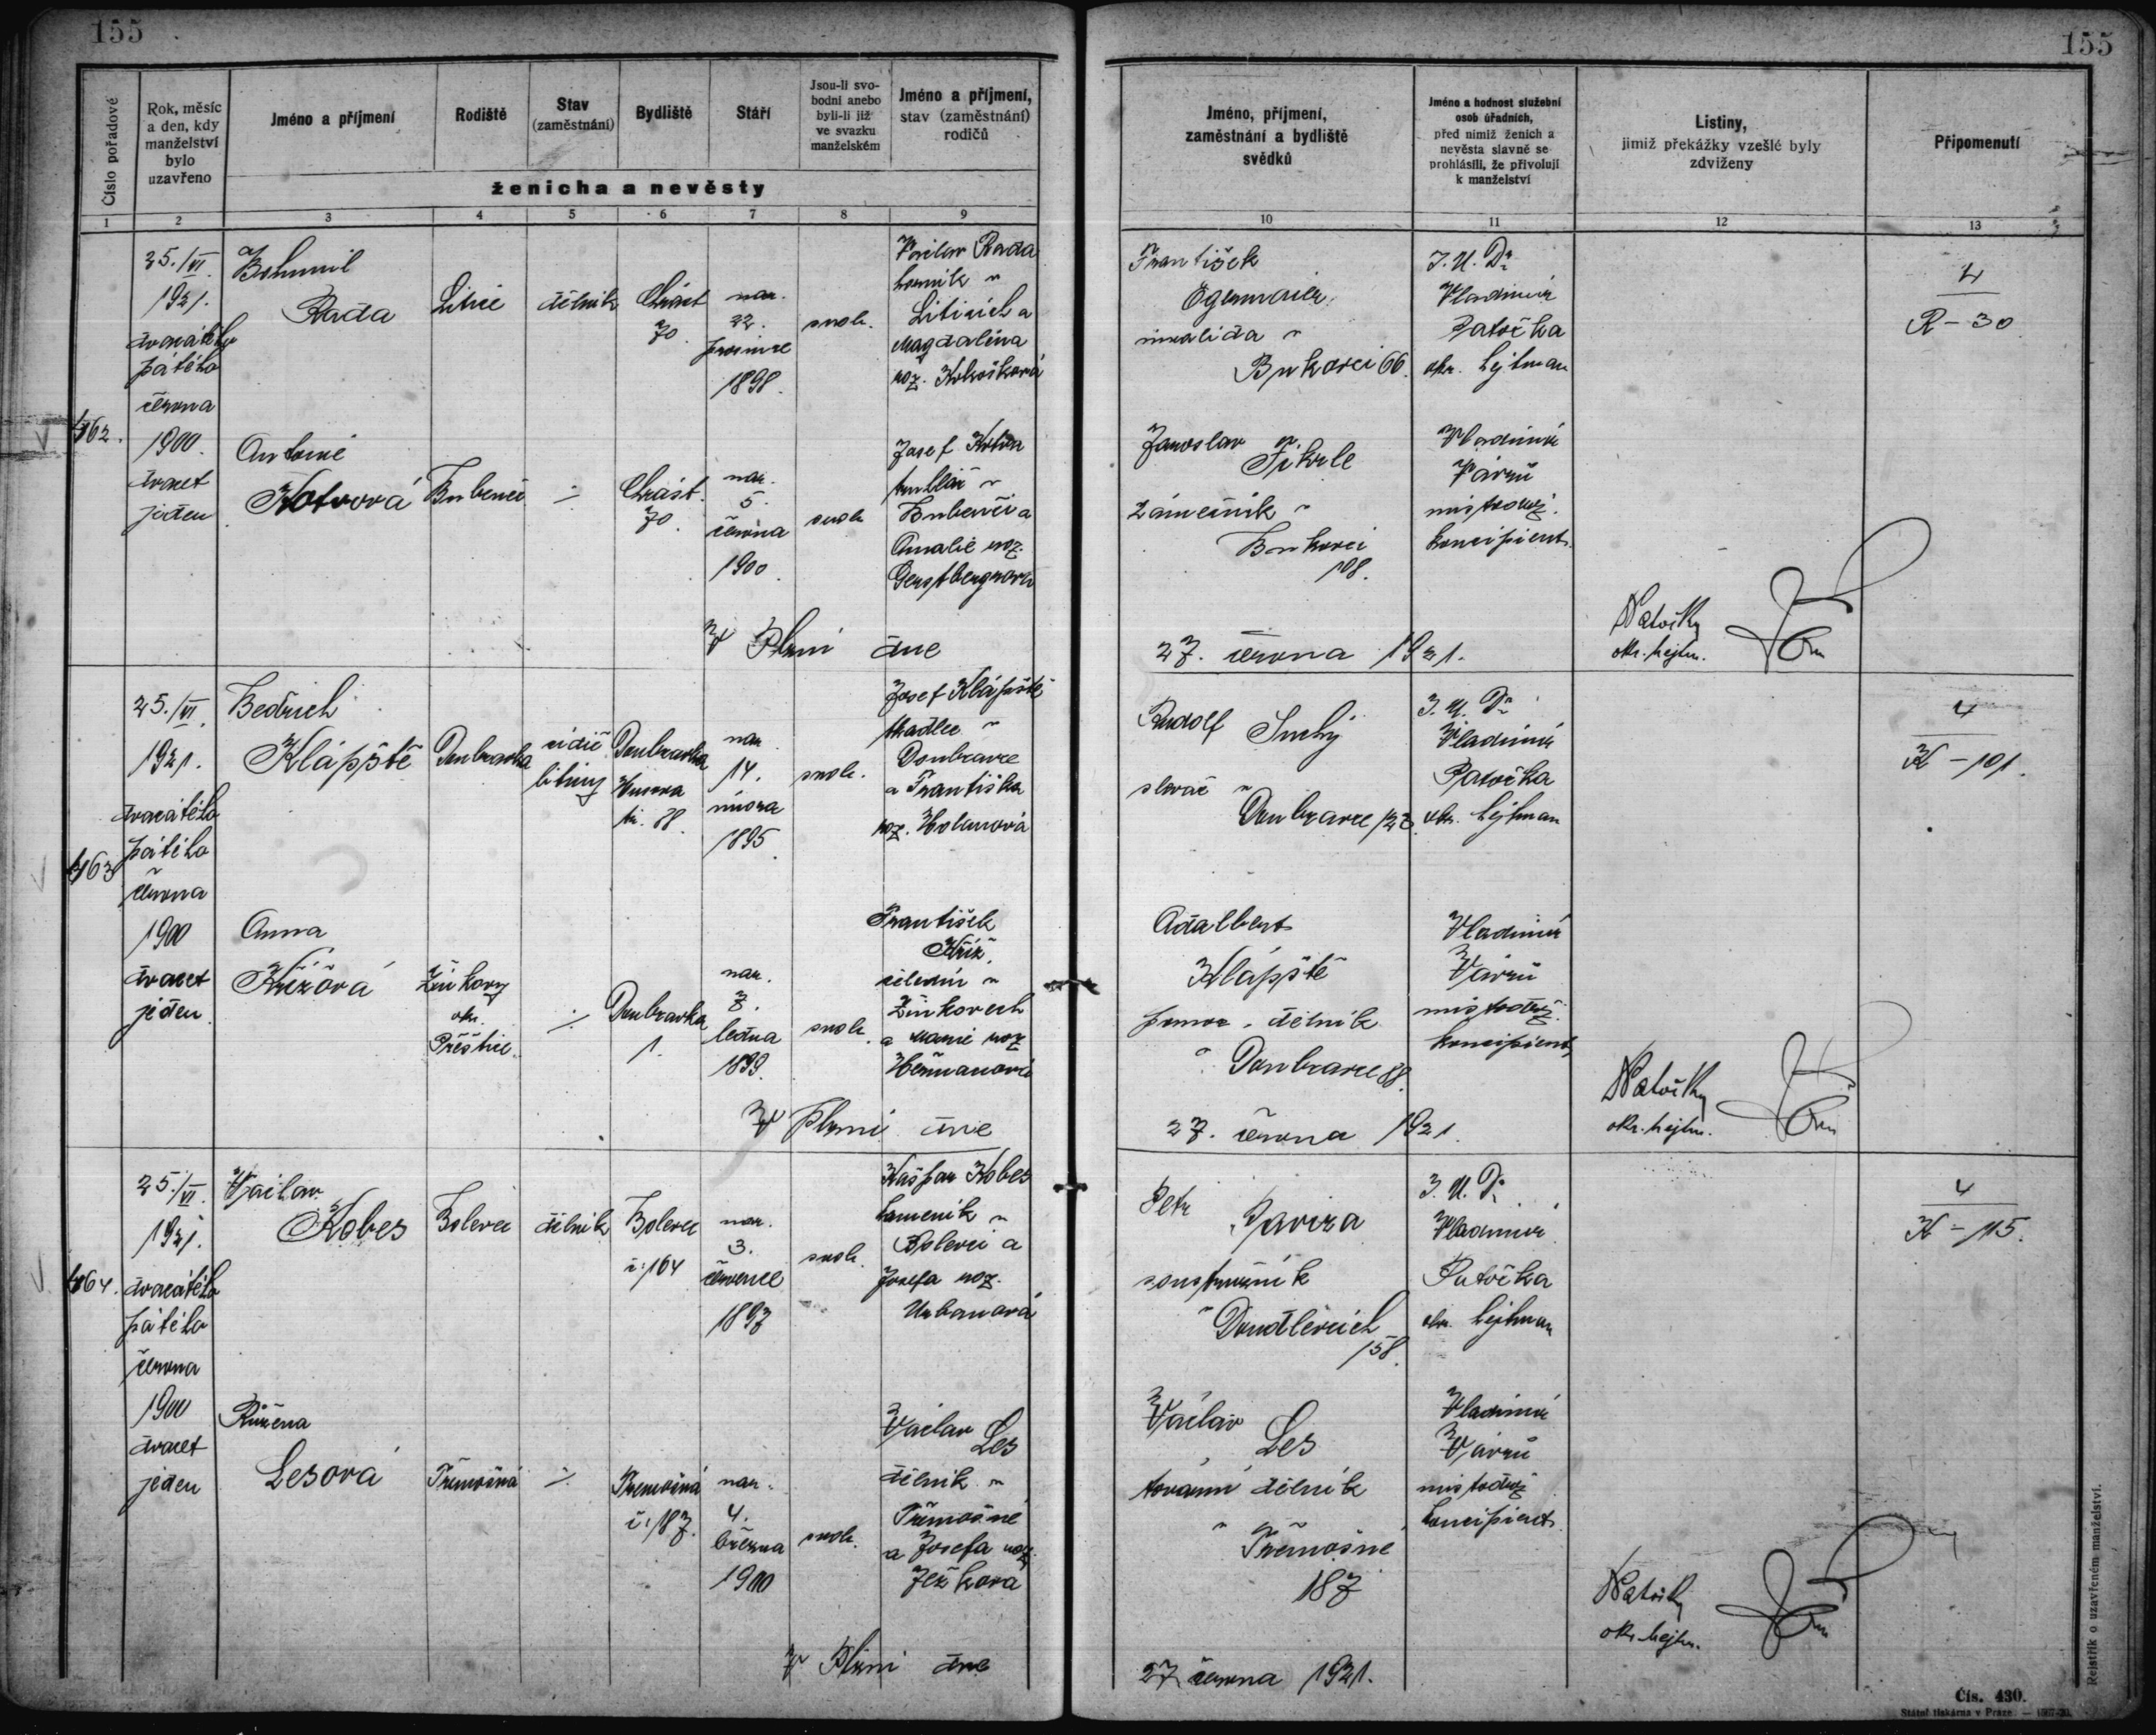 155
155
Číslo pořadové
Rok, měsíc
a den, kdy
manželství
bylo
uzavřeno
Jméno a příjmení
Rodiště
Stav
(zaměstnání)
Bydliště
Stáří
Jsou-li svo-
bodni anebo
byli-li již
ve svazku
manželském
Jméno a příjmení,
stav (zaměstnání)
rodičů
ženicha a nevěsty
1 2 3 4 5 6 7 8 9
Jméno, příjmení,
zaměstnání a bydliště
svědků
Jméno a hodnost služební
osob úřadních,
před nimiž ženich a
nevěsta slavně se
prohlásili, že přivolují
k manželství
Listiny,
jimiž překážky vzešlé byly
zdviženy
Připomenutí
10 11 12 13
25./VI
1921.
dvacátého
pátého
června
1900
dvacet
jeden
Bohumil
Rada
Litice
dělník
Chrást
70
nar.
22.
prosince
1898.
svob.
Václav Rada
horník v
Liticích a
Magdalena
roz.
František
invalida v
Bukovci 66.
J. U. Dr
Vladimír
Patočka
okr. hejtman
4
R - 30
162.
Antonie
Kotvová
Bubeneč
÷
Chrást
70.
nar.
5.
června
1900.
svob.
Josef Kotva
truhlář v
Bubenči a
Amalie roz.
Jaroslav
Fikrle
zámečník v
Bukovci
108.
Vladimír
Vávrů
místodrž.
koncipient.
V Plzni dne
27. června 1921.
Patočka
okr. hejtm.
25./VI.
1921.
dvacátého
pátého
června
1900
dvacet
jeden
Bedřich
Klápště
Doubravka
řidič
Doubravka
Husova
tř. 88.
nar.
14.
února
1895.
svob.
Josef Klápště
tkadlec v
Doubravce
a Františka
roz. Holanová
Rudolf
Suchý
v
Doubravce 123
J. U. Dr
Vladimír
Patočka
okr. hejtman
4
K - 101.
163
Anna
Křížová
Žinkovy
okr.
Přeštice.
÷
Doubravka
1.
nar.
7.
ledna
1899.
svob.
František
Kříž,
čeledín v
Žinkovech
a Marie roz
Heřmanová
Adalbert
Klápště
pomoc. dělník
v Doubravce 88.
Vladimír
Vávrů
místodrž.
koncipient
V Plzni dne
27. června 1921.
Patočka
okr. hejtm.
25./VI.
1921.
dvacátého
pátého
června
1900
dvacet
jeden
Václav
Kobes
Bolevec
dělník
Bolevec
č: 164
nar.
3.
července
1897
svob.
Kašpar Kobes
kameník v
Bolevci a
Josefa roz.
Urbanová
Petr
soustružník
v Doudlevcích
158.
J. U. Dr
Vladimír
Patočka
okr. hejtman
4
K - 115.
164.
Růžena
Lesová
Třemošná
÷
Třemošná
č: 187.
nar.
4.
března
1900
svob.
Václav Les
dělník v
Třemošné
a Josefa roz.
Ježková
Václav
Les
tovární dělník
v Třemošné
187
Vladimír
Vávrů
místodrž
koncipient
V Plzni dne
27 června 1921.
Patočka
okr. hejtm.
Rejstřík o uzavřeném manželství.
Čís. 430.
Státní tiskárna v Praze.